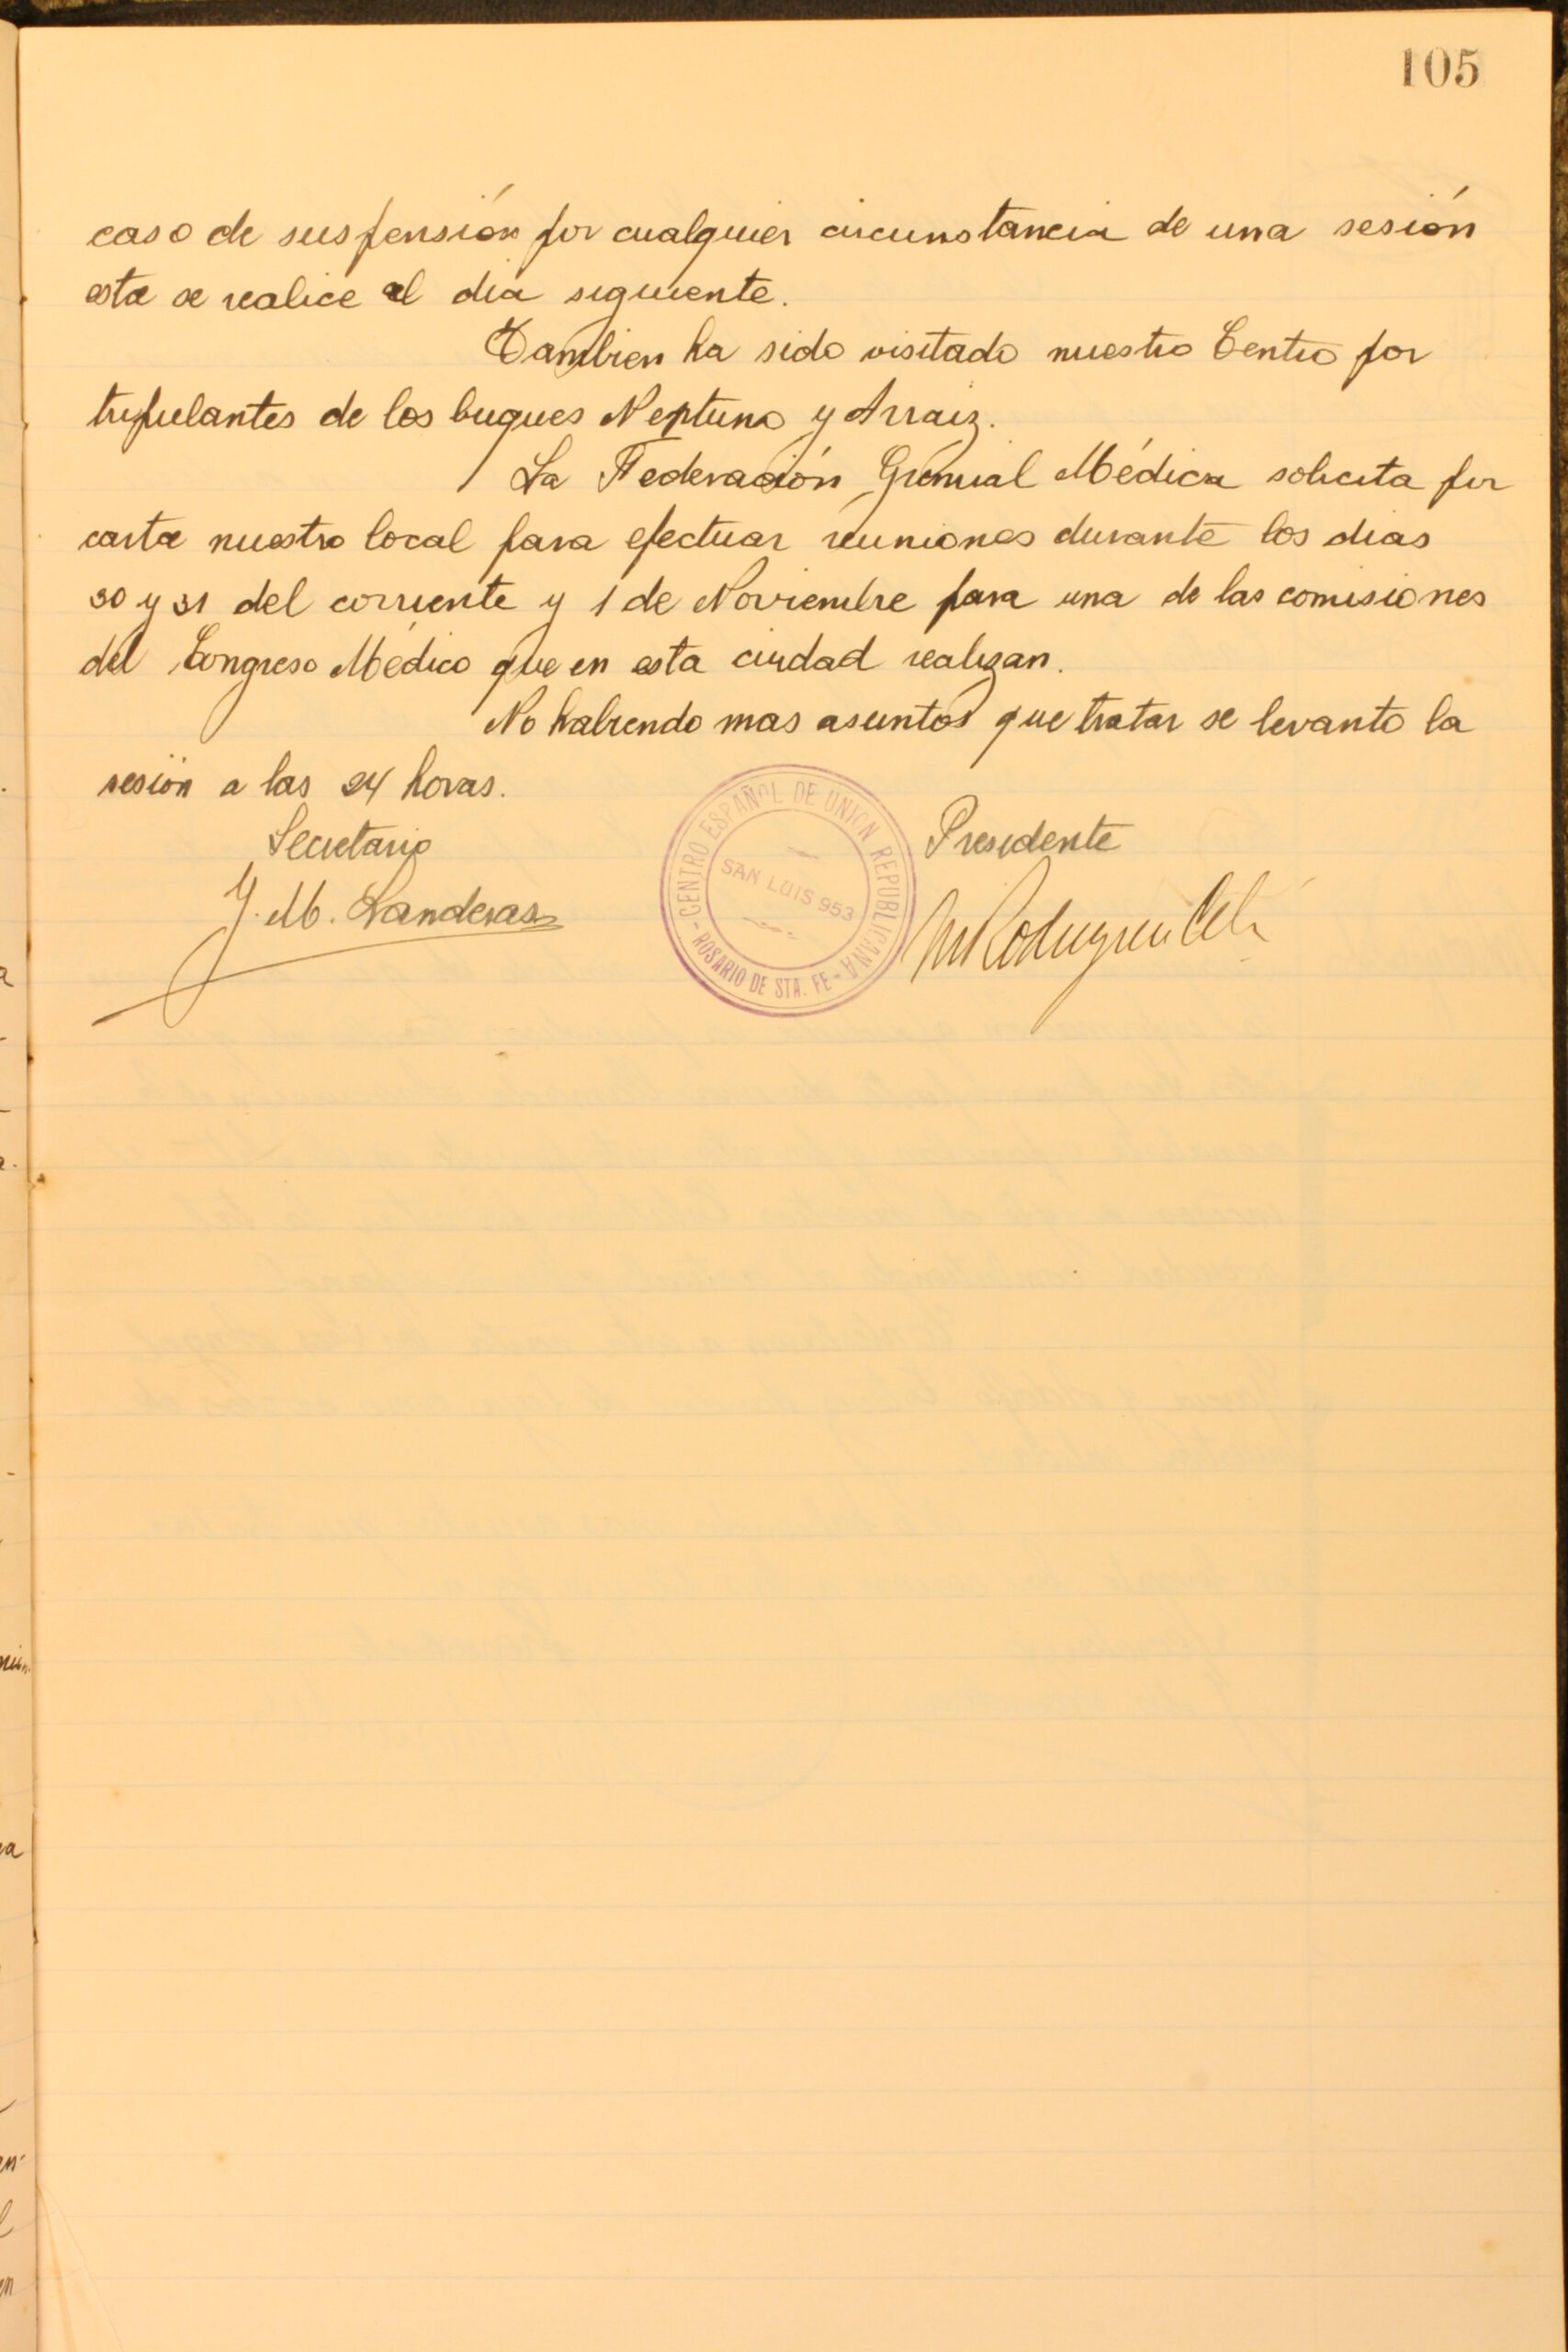 105
caso de suspensión por cualquier circunstancia de una sesión
esta se realice al dia siguiente.
Tambien ha sido visitado nuestro Centro por
tripulantes de los buques Neptuno y Arraiz.
La Federación Gremial Médica solicita por
carta nuestro local para efectuar reuniones durante los dias
30 y 31 del corriente y 1 de Noviembre para una de las comisiones
del Congreso Médico que en esta ciudad realizan.
No habiendo mas asuntos que tratar se levanto la
sesión a las 24 horas.
Secretario
Presidente
J. M. Landeras
M Rodriguez
CENTRO ESPAÑOL DE UNION REPUBLICANA
SAN LUIS 953
- ROSARIO DE STA. FE -